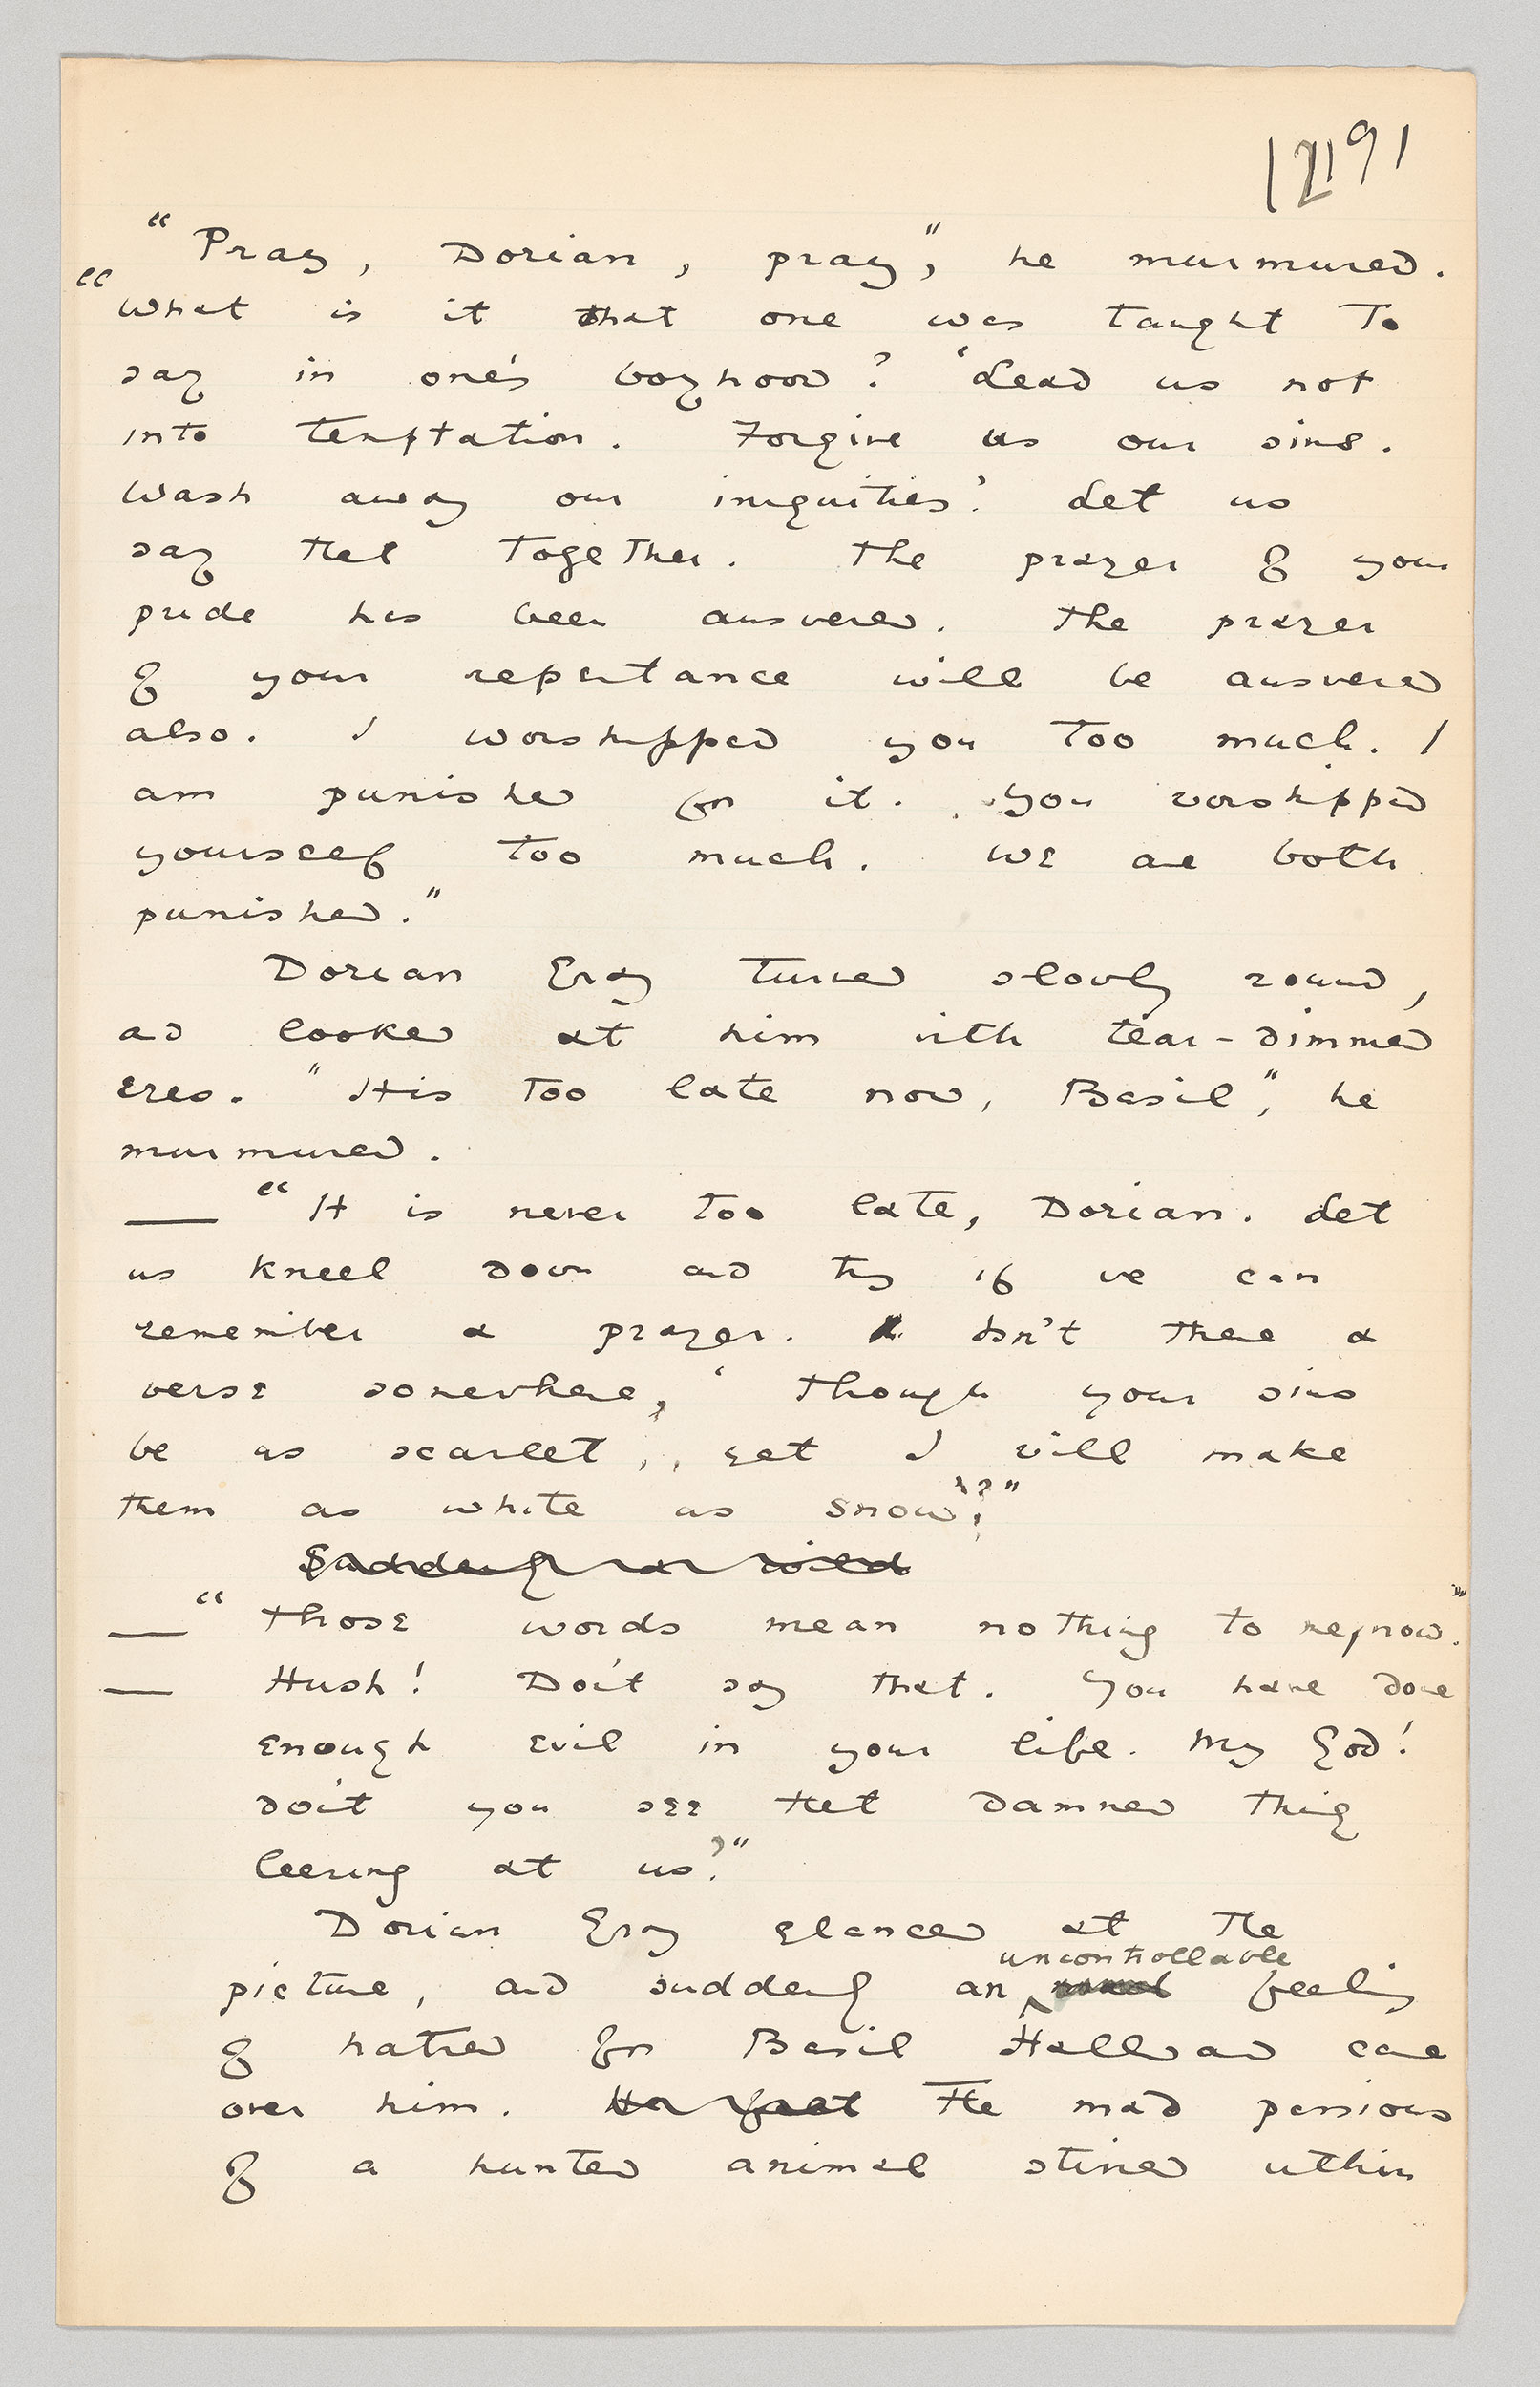 "Pray, Dorian, pray", he murmured.
"What is it that one was taught to
say in one's boyhood? 'Lead us not
into temptation. Forgive us our sins.
Wash away our iniquities.' Let us
say that together. The prayer of your
pride has been answered. The prayer
of your repentance will be answered
also. I worshipped you too much. I
am punished for it. You worshipped
yourself too much. We are both
punished."
Dorian Gray turned slowly round,
and looked at him with tear-dimmed
eyes. "It is too late now, Basil", he
murmured.
— "It is never too late, Dorian. Let
us kneel down and try if we can
remember a prayer. Isn't there a
verse somewhere, 'Though your sins
be as scarlet, yet I will make
them as white as snow'?"
Suddenly a wild
— "Those words mean nothing to me, now."
— Hush! Don't say that. You have done
enough evil in your life. My God!
don't you see that damned thing
leering at us?"
Dorian Gray glanced at the
uncontrollable
picture, and suddenly an feeling
of hatred for Basil Hallward came
over him. The mad passions
of a hunted animal stirred within